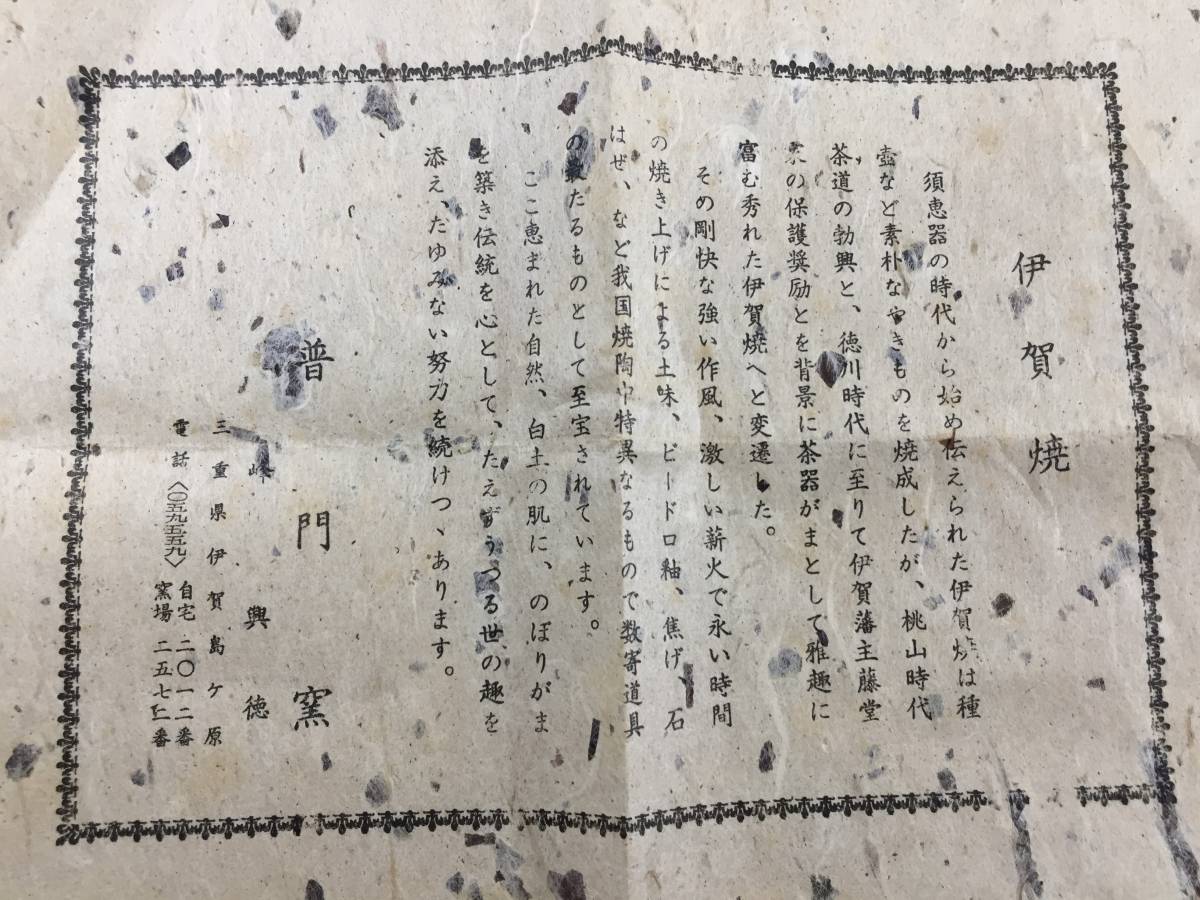 伊賀焼
須恵器の時代から始め伝えられた伊賀焼は種
壺など素朴なやきものを焼成したが、桃山時代
茶道の勃興と、徳川時代に至りて伊賀藩主藤堂
の保護奨励とを背景に茶器がまとして雅趣に
富む秀れた伊賀焼へと変遷した。
その剛快な強い作風、激しい薪火で永い時間
の焼き上げによる土味、ビードロ釉、焦げ、石
はぜ、など我国焼陶中特異なるもので数寄道具
の最たるものとして至宝されています。
ここ恵まれた自然、白土の肌に、のぼりがま
を築き伝統を心として、たえずうつる世の趣を
添え、たゆみない努力を続けつゝあります。
普門窯
峰興徳
三重県伊賀島ケ原
電話〈〇五九五五九〉
自宅 二〇一二番
窯場 二五七番